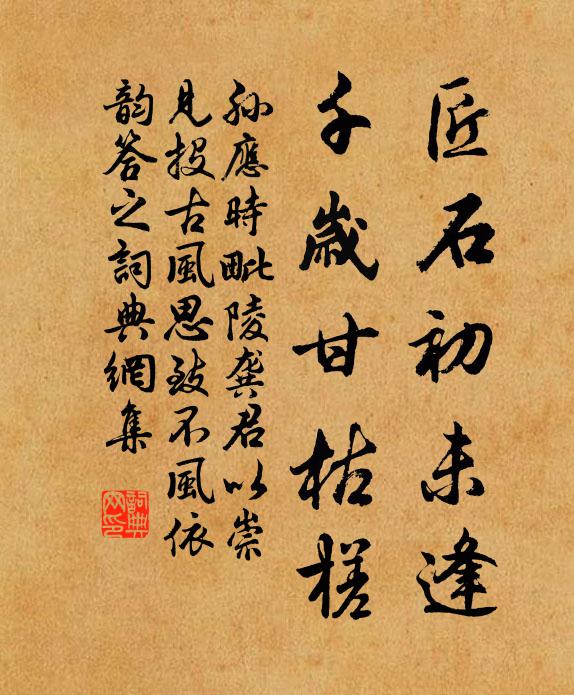 匠石初未逢
千歲甘枯槎
孙應時毗陵龔君以崇
見投古風思致不風依
韵答之詞典網集